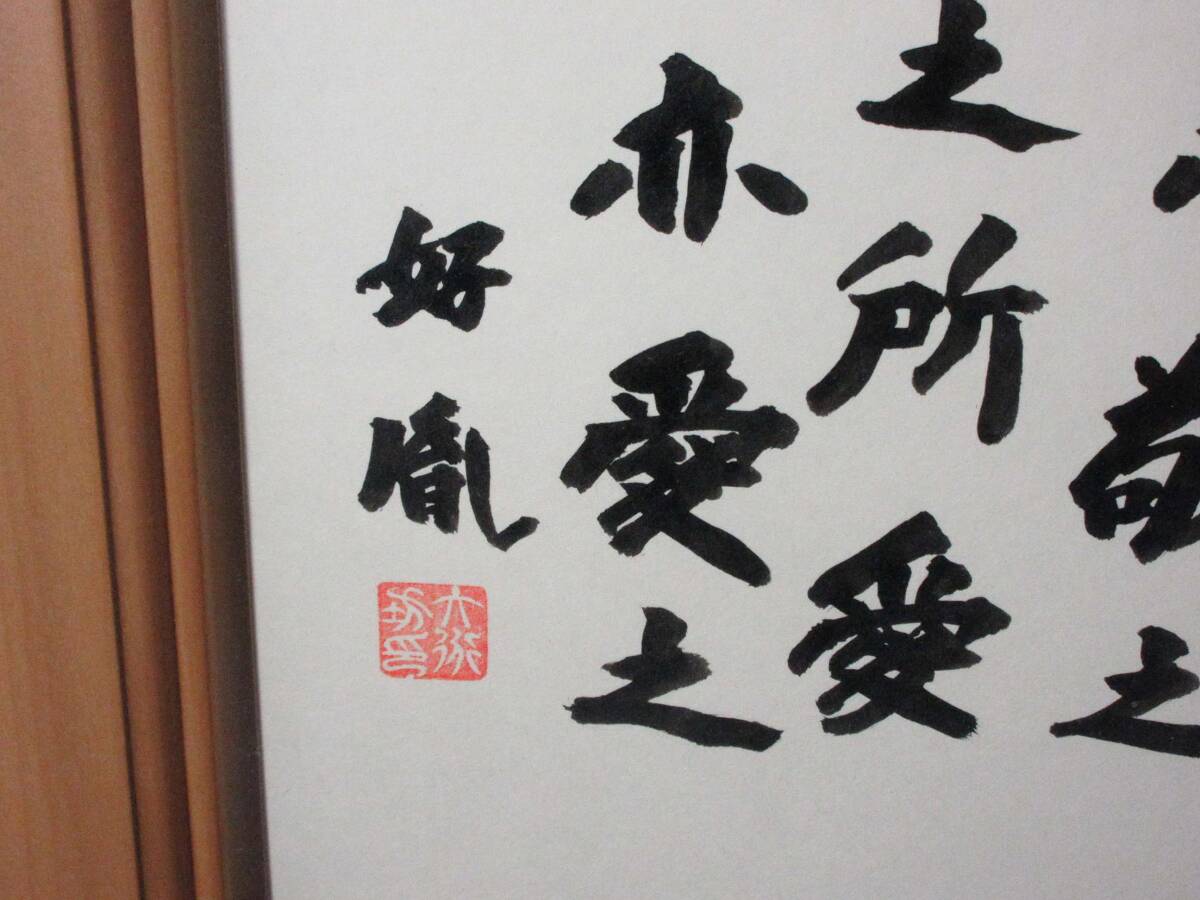 敬之
之所愛
亦愛之
好胤